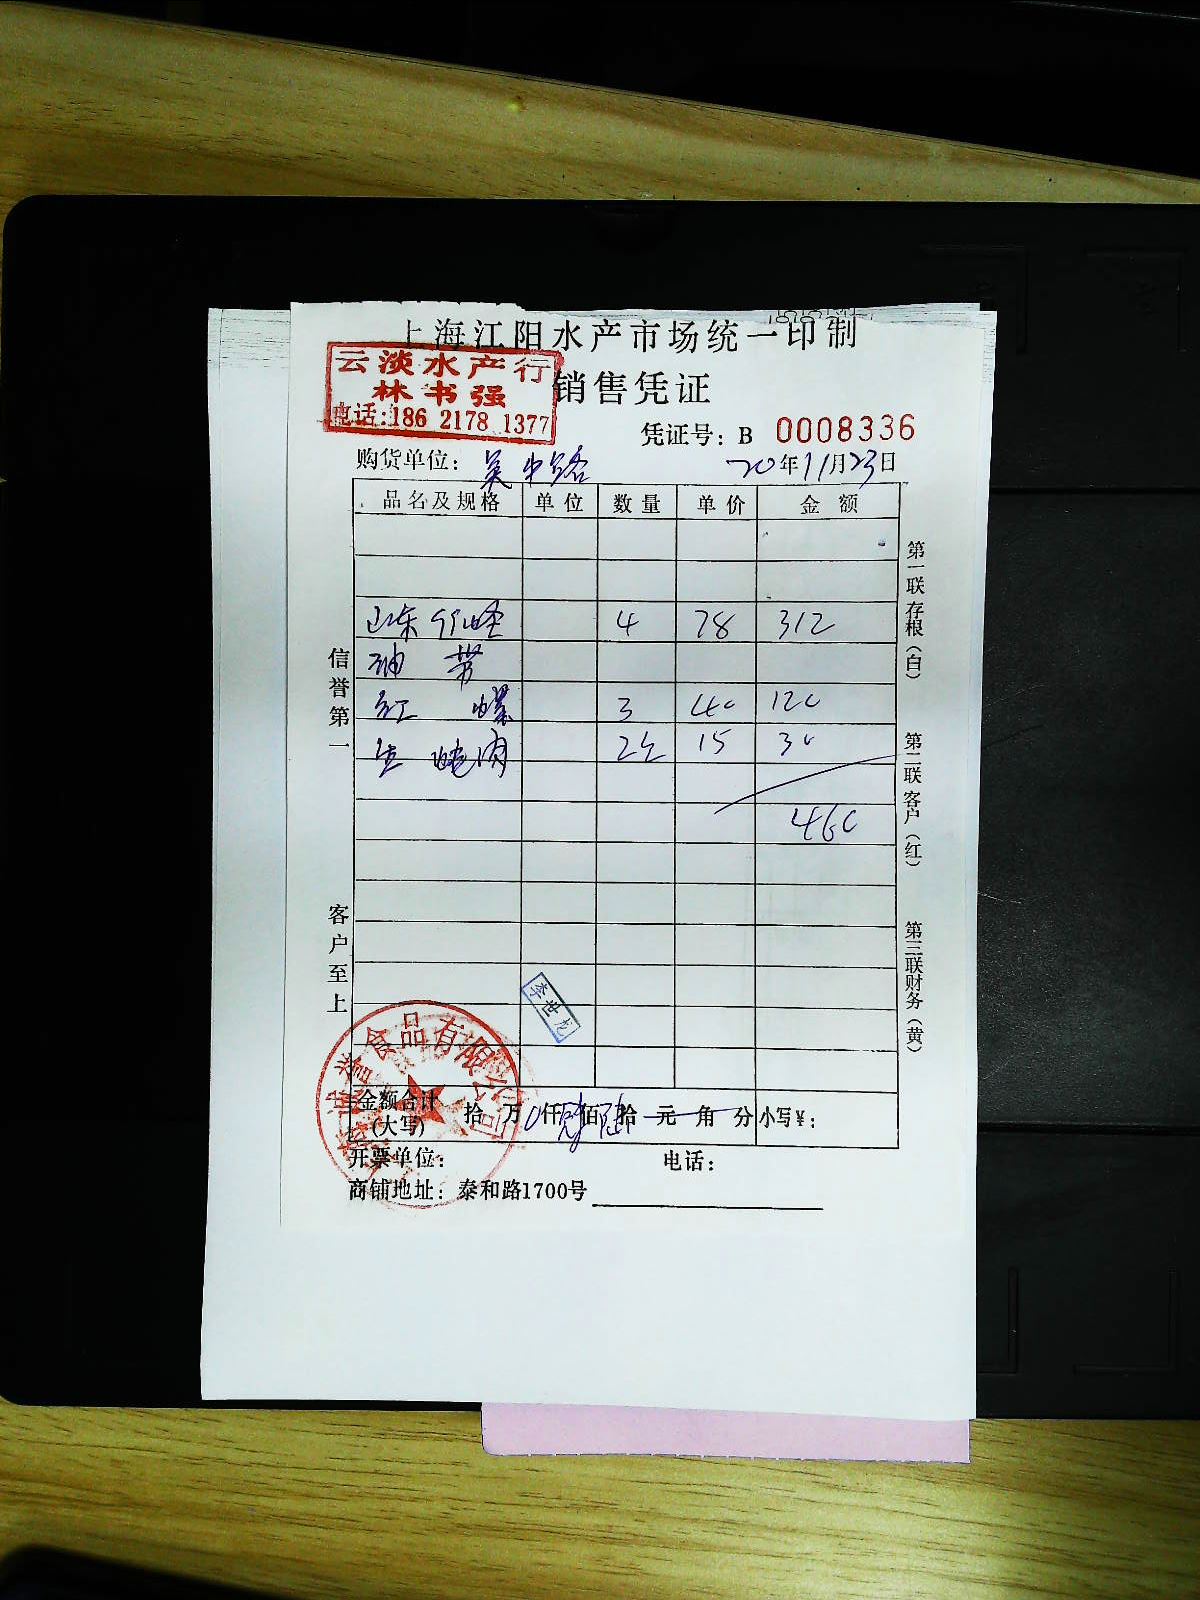 上海江阳水产市场统一印制
云淡水产行
林书强
电话:186 2178 1377
销售凭证
凭证号: B 0008336
购货单位: 吴中路 20年11月23日
品名及规格 单位 数量 单价 金额
山东 4 78 312
油 带
红 螺 3 40 120
生 肉 2 15 30
460
信誉第一
客户至上
第一联存根(白)
第二联客户(红)
第三联财务(黄)
李世龙
誉食品有限公司
金额合计(大写) 拾 万 仟 佰 拾 元 角 分 小写¥:
开票单位: 电话:
商铺地址: 泰和路1700号